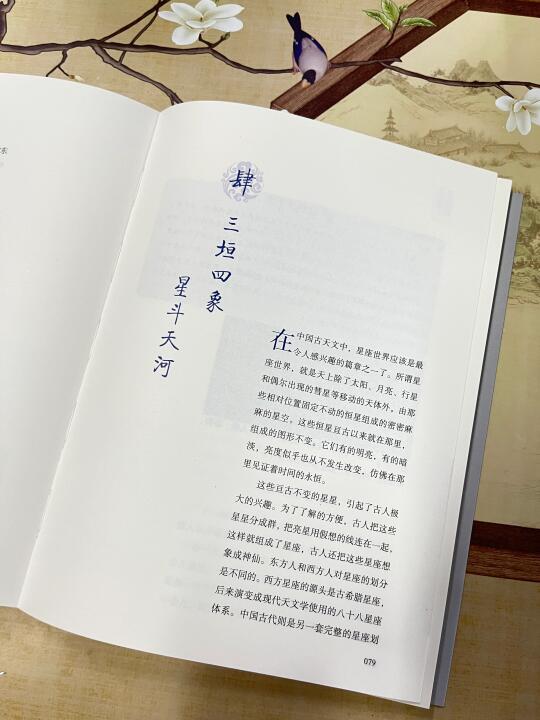 东
肆
三垣四象
星斗天河
在中国古天文中，星座世界应该是最
令人感兴趣的篇章之一了。所谓星
座世界，就是天上除了太阳、月亮、行星
和偶尔出现的彗星等移动的天体外，由那
些相对位置固定不动的恒星组成的密密麻
麻的星空。这些恒星亘古以来就在那里，
组成的图形不变。它们有的明亮，有的暗
淡，亮度似乎也从不发生改变，仿佛在那
里见证着时间的永恒。
这些亘古不变的星星，引起了古人极
大的兴趣。为了了解的方便，古人把这些
星星分成群，把亮星用假想的线连在一起，
这样就组成了星座，古人还把这些星座想
象成神仙。东方人和西方人对星座的划分
是不同的。西方星座的源头是古希腊星座，
后来演变成现代天文学使用的八十八星座
体系。中国古代则是另一套完整的星座划
079